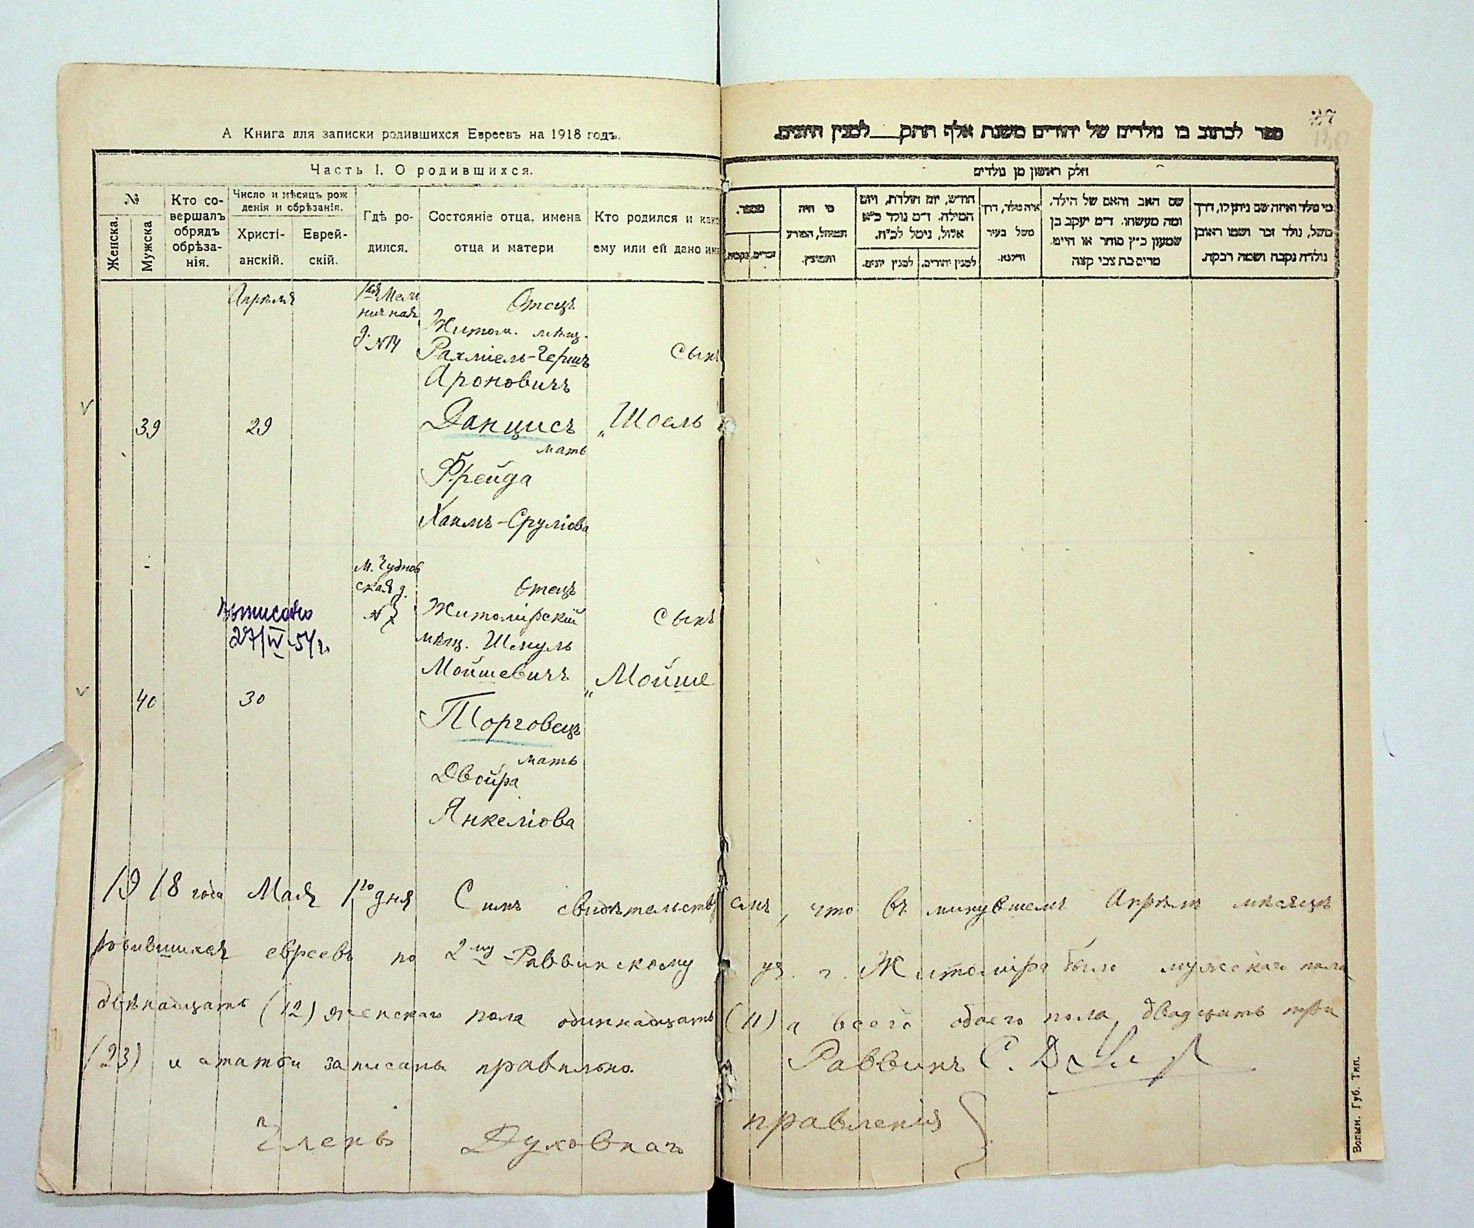 А Книга для записки родившихся Евреевъ на 1918 годъ.
Часть I. О родившихся.
№
Женска.
Мужска
Кто со-
вершалъ
обрядъ
обрѣза-
нія.
Число и мѣсяцъ рож
денія и обрѣзанія.
Христі-
анскій.
Еврей-
скій.
Гдѣ ро-
дился.
Состояніе отца, имена
отца и матери
Кто родился и како
ему или ей дано имя
Апрѣля
1ая Мель
ничная
д. №14
Отецъ
Житом. мѣщ.
Рахміель-Гершъ
Ароновичъ
Данцисъ
мать
Фрейда
Хаимъ-Сруліова
Сынъ
„Шоель
39
29
М. Чуднов
ская д.
№ 7
Отецъ
Житомірскій
мѣщ. Шмуль
Мойшевичъ
Торговецъ
мать
Двойра
Янкеліова
Сынъ
„Мойше
Выписано
27/IV 51 г.
40
30
ספר לכתוב בו נולדים של יהודים משנת אלף תתק___ למנין היונים.
37
130
חלק ראשון מן נולדים
מספר.
נקבות.
זכרים.
מי היה
המוהל, הפורע
והמוצץ.
החדש, יום תולדת, ויום
המילה. ד״מ נולד כ״א
אלול, נימל לכ״ח.
למנין יונים.
למנין יהודים.
איה נולד, דרך
משל בעיר
ווילנא.
שם האב והאם של הילד,
ומה מעשהו. ד״מ יעקב בן
שמעון כ״ץ סוחר או חייט.
מרים בת צבי קצה
מי נולד ואיזה שם ניתן לו, דרך
משל, נולד זכר ושמו ראובן
נולדה נקבה ושמה רבקה.
1918 года Мая 1го дня Симъ свидѣтельствую самъ, что въ минувшемъ Апрѣлѣ мѣсяцѣ
родившихся евреевъ по 2му Раввинскому уч. г. Житоміра было мужскаго пола
двѣнадцать (12) женскаго пола одиннадцать (11) а всего обоего пола двадцать три
(23) и статьи записаны правильно.
Раввинъ С.
Членъ Духовнаго правленія
Волын. Губ. Тип.